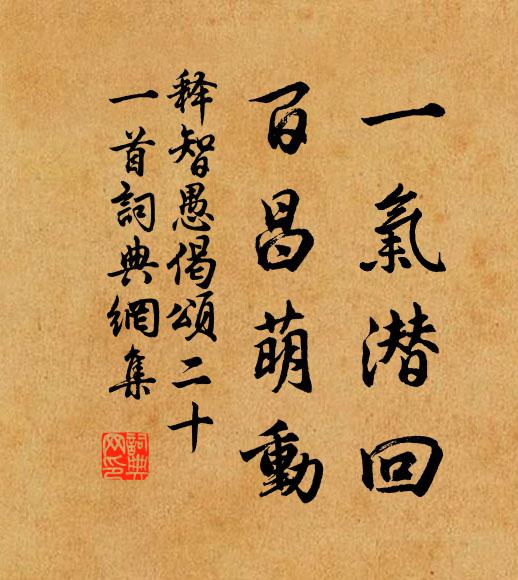 一氣潜回
百昌萌動
释智愚偈頌二十
一首詞典網集
詞典
网印